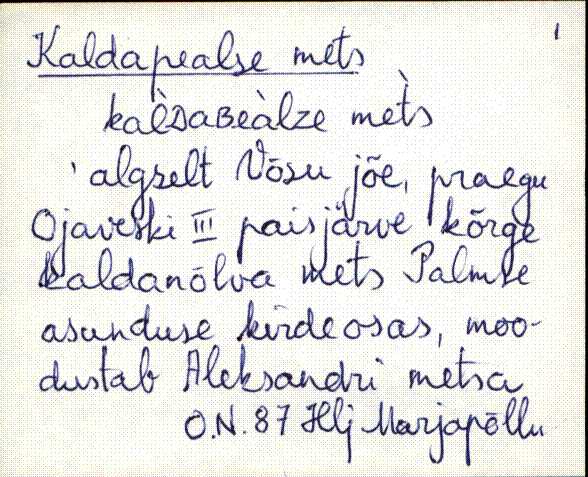 1
Kaldapealse mets
kal̀dabeàlze met̀s
algselt Võsu jõe, praegu
Ojaveski III paisjärve kõrge
kaldanõlva mets Palmse
asunduse kirdeosas, moo-
dustab Aleksandri metsa
O.N. 87 Hlj Marjapõllu